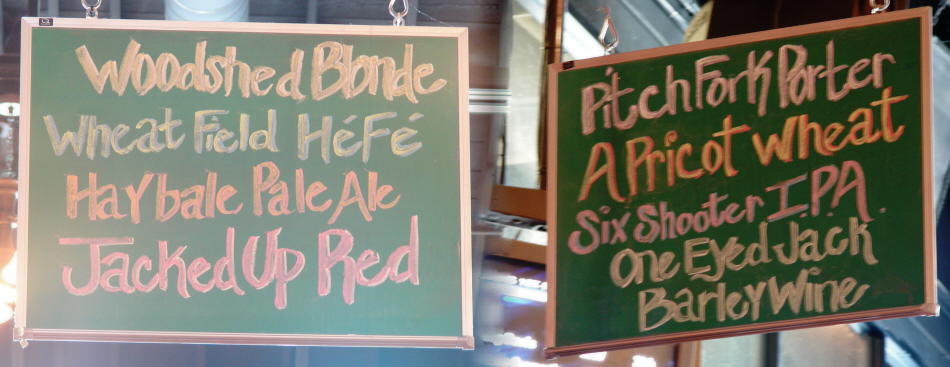 Woodshed Blonde
Wheat Field HéFé
Haybale Pale Ale
Jacked Up Red
PitchFork Porter
Apricot Wheat
Six Shooter I.P.A.
One Eyed Jack
Barley Wine